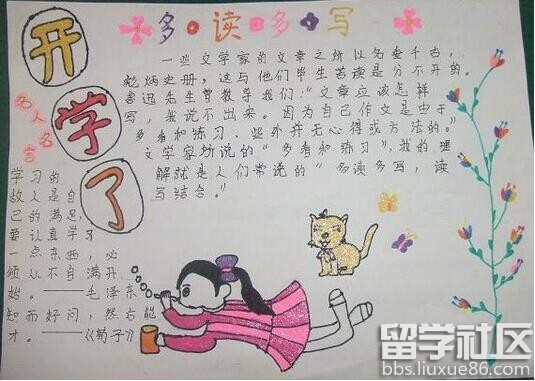 开学了
多·读·多·写
一些文学家的文章之所以名垂千古,
彪炳史册,这与他们毕生苦读是分不开的。
鲁迅先生曾教导我们:“文章应该怎样
写,我说不出来。因为自己作文是由于
多看和练习,此外并无心得或方法的。”
文学家所说的“多看和练习”,我的理
解就是人们常说的“多读多写,读
写结合。”
名人名言
学习的
敌人是自
己的满足,
要认真学习
一点东西,必
须从不自满开
始。——毛泽东
知而好问,然后能
才。——《荀子》
留学社区
bbs.liuxue86.com